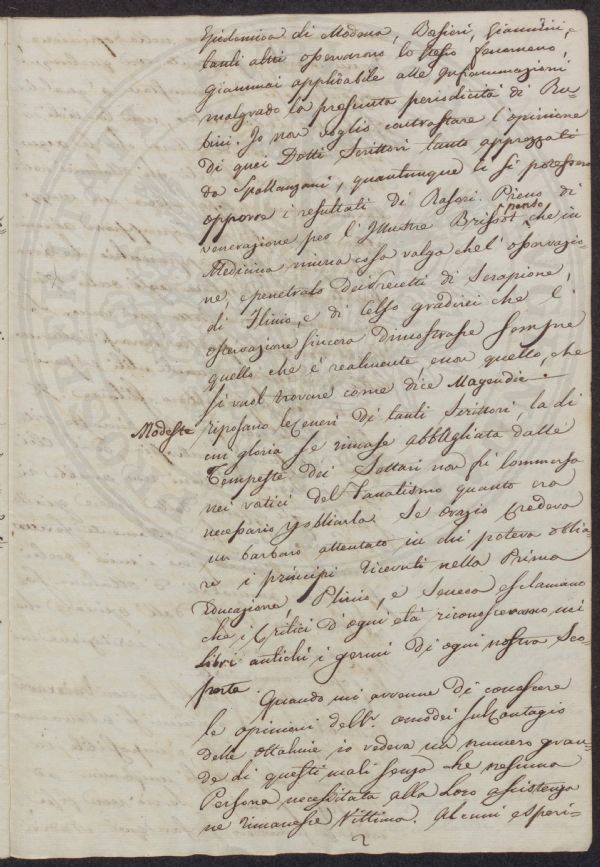 Epidemica di Modena, Borsieri, Giannini, e
tanti altri osservarono lo stesso fenomeno,
giammai applicabile alle Infiammazioni
malgrado la presunta periodicità di Ru-
bini. Io non voglio contrastare l'opinione
di quei Dotti Scrittori tanto apprezzati
da Spallanzani, quantunque li si potessero
opporre i resultati di Rasori. Pieno di
venerazione per l'Illustre Brissot che in
Medicina niuna cosa valga che l'osservazio-
ne, e penetrato dei Precetti di Serapione,
di Plinio, e di Celso gradirei che l'
osservazione sincera dimostrasse sempre
quello che è realmente e non quello, che
si vuol trovare come dice Magendie.
Modeste riposano le Ceneri di tanti Scrittori, la di
cui gloria se rimase abbagliata dalle
Tempeste dei Settari non fù sommersa
nei vortici del Fanatismo quanto era
necessario obliarla. Se Orazio credeva
un barbaro attentato in chi poteva oblia-
re i principi ricevuti nella Prima
Educazione, Plinio, e Seneca esclamano
che i Critici d'ogni età riconosceranno nei
Libri antichi i germi di ogni nostra Sco-
perta. Quando mi avvenne di conoscere
le opinioni dell'. Omodei sul Contagio
delle Ottalmie io vedeva un numero gran-
de di questi mali senza che nessuna
Persona necessitata alla Loro assistenza
ne rimanesse Vittima. Alcuni esperi-
2